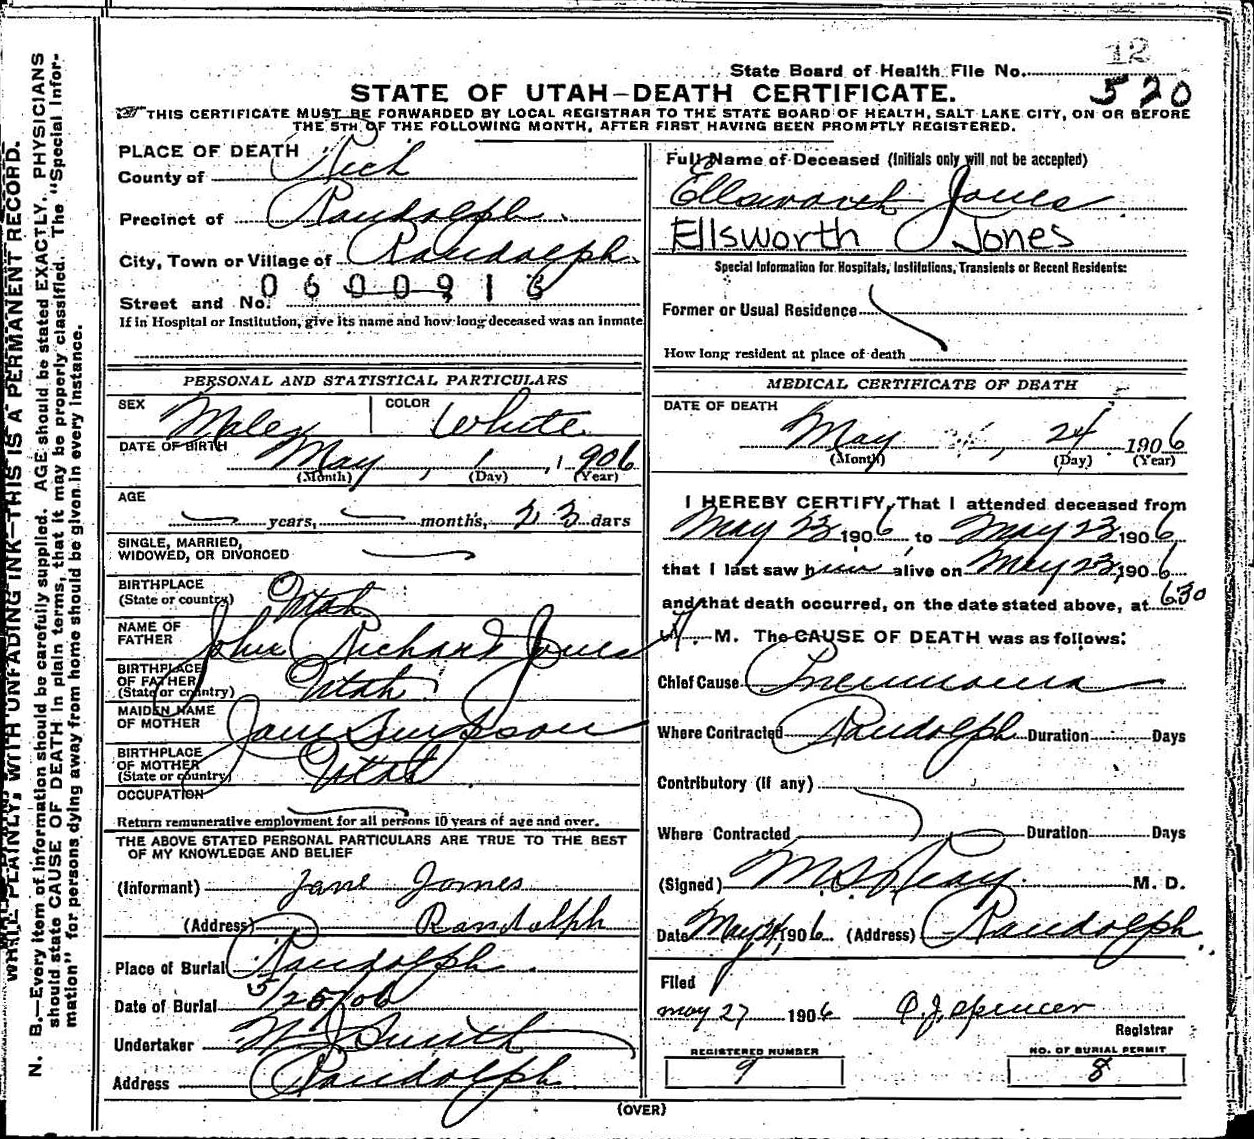 12
State Board of Health File No. 520
STATE OF UTAH—DEATH CERTIFICATE.
THIS CERTIFICATE MUST BE FORWARDED BY LOCAL REGISTRAR TO THE STATE BOARD OF HEALTH, SALT LAKE CITY, ON OR BEFORE
THE 5TH OF THE FOLLOWING MONTH, AFTER FIRST HAVING BEEN PROMPTLY REGISTERED.
WRITE PLAINLY, WITH UNFADING INK—THIS IS A PERMANENT RECORD.
N. B.—Every item of information should be carefully supplied. AGE should be stated EXACTLY. PHYSICIANS
should state CAUSE OF DEATH in plain terms, that it may be properly classified. The "Special Infor-
mation" for persons dying away from home should be given in every instance.
PLACE OF DEATH
County of Rich
Precinct of Randolph
City, Town or Village of Randolph
0600916
Street and No.
If in Hospital or Institution, give its name and how long deceased was an inmate
PERSONAL AND STATISTICAL PARTICULARS
SEX Male COLOR White
DATE OF BIRTH May, 1, 1906
(Month) (Day) (Year)
AGE
years, months, 23 days
SINGLE, MARRIED,
WIDOWED, OR DIVORCED
BIRTHPLACE
(State or country) Utah
NAME OF
FATHER John Richard Jones
BIRTHPLACE
OF FATHER
(State or country) Utah
MAIDEN NAME
OF MOTHER Jane Simpson
BIRTHPLACE
OF MOTHER
(State or country) Utah
OCCUPATION
Return remunerative employment for all persons 10 years of age and over.
THE ABOVE STATED PERSONAL PARTICULARS ARE TRUE TO THE BEST
OF MY KNOWLEDGE AND BELIEF
(Informant) Jane Jones
(Address) Randolph
Place of Burial Randolph
Date of Burial 5/25/06
Undertaker W J Smith
Address Randolph
Full Name of Deceased (Initials only will not be accepted)
Ellsworth Jones
Ellsworth Jones
Special Information for Hospitals, Institutions, Transients or Recent Residents:
Former or Usual Residence
How long resident at place of death
MEDICAL CERTIFICATE OF DEATH
DATE OF DEATH
May, 24 1906
(Month) (Day) (Year)
I HEREBY CERTIFY, That I attended deceased from
May 23 1906, to May 23, 1906,
that I last saw him alive on May 23, 1906
and that death occurred, on the date stated above, at 630
M. The CAUSE OF DEATH was as follows:
Chief Cause Pneumonia
Where Contracted Randolph Duration Days
Contributory (if any)
Where Contracted Duration Days
(Signed) M. D.
Date May 24, 1906 (Address) Randolph
Filed
may 27 1906 O. J. Spencer
Registrar
REGISTERED NUMBER
9
NO. OF BURIAL PERMIT
8
(OVER)